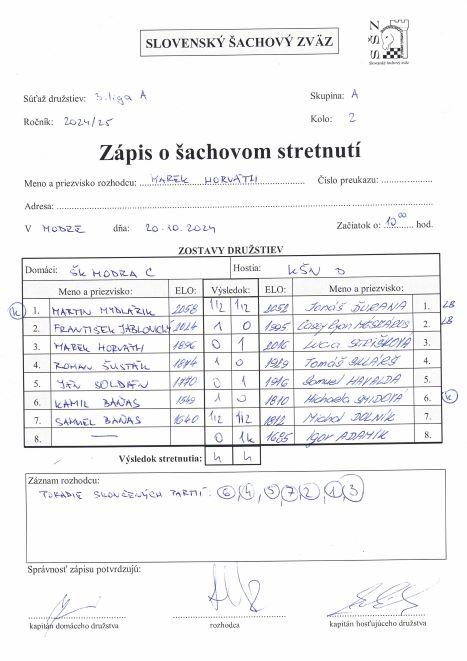 SLOVENSKÝ ŠACHOVÝ ZVÄZ
SŠZ
Slovenský šachový zväz
Súťaž družstiev: 3. liga A Skupina: A
Ročník: 2024/25 Kolo: 2
Zápis o šachovom stretnutí
Meno a priezvisko rozhodcu: MAREK HORVÁTH Číslo preukazu:
Adresa:
V MODRE dňa: 20.10.2024 Začiatok o: 10⁰⁰ hod.
ZOSTAVY DRUŽSTIEV
Domáci: ŠK MODRA C Hostia: KŠN D
Meno a priezvisko: ELO: Výsledok: ELO: Meno a priezvisko:
K 1. MARTIN MYDLÁRIK 2058 1/2 1/2 Tomáš 1. LB
2. FRANTIŠEK JABLONICKÝ 1 0 2. LB
3. MAREK HORVÁTH 1896 0 1 2016 Lucia 3.
4. ROMAN ŠUSTÁK 1844 1 0 1929 Tomáš 4.
5. JÁN SOLDÁN 1770 0 1 1916 Samuel HAVALDA 5.
6. KAMIL BAŇAS 1 0 1810 Michaela ŠMIDOVÁ 6. K
7. SAMUEL BAŇAS 1640 1/2 1/2 1812 Michal DOLNÍK 7.
8. — 0 1k 1685 Igor ADAMÍK 8.
Výsledok stretnutia: 4 4
Záznam rozhodcu:
PORADIE SKONČENÝCH PARTIÍ: 6, 4, 5, 7, 2, 1, 3
Správnosť zápisu potvrdzujú:
kapitán domáceho družstva rozhodca kapitán hosťujúceho družstva